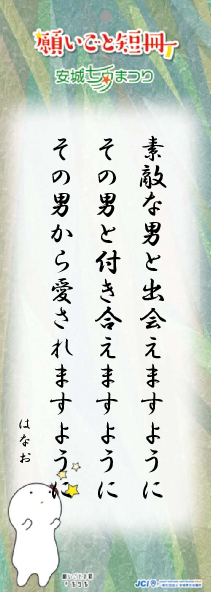 願いごと短冊
安城七夕まつり
素敵な男と出会えますように
その男と付き合えますように
その男から愛されますように
はなお
JCI